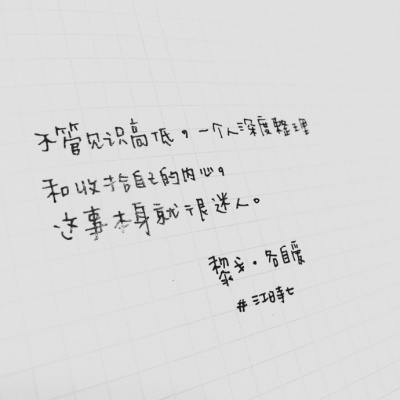 不管见识高低，一个人深度整理
和收拾自己的内心，
这事本身就很迷人。
黎戈·各自爱
#江時七